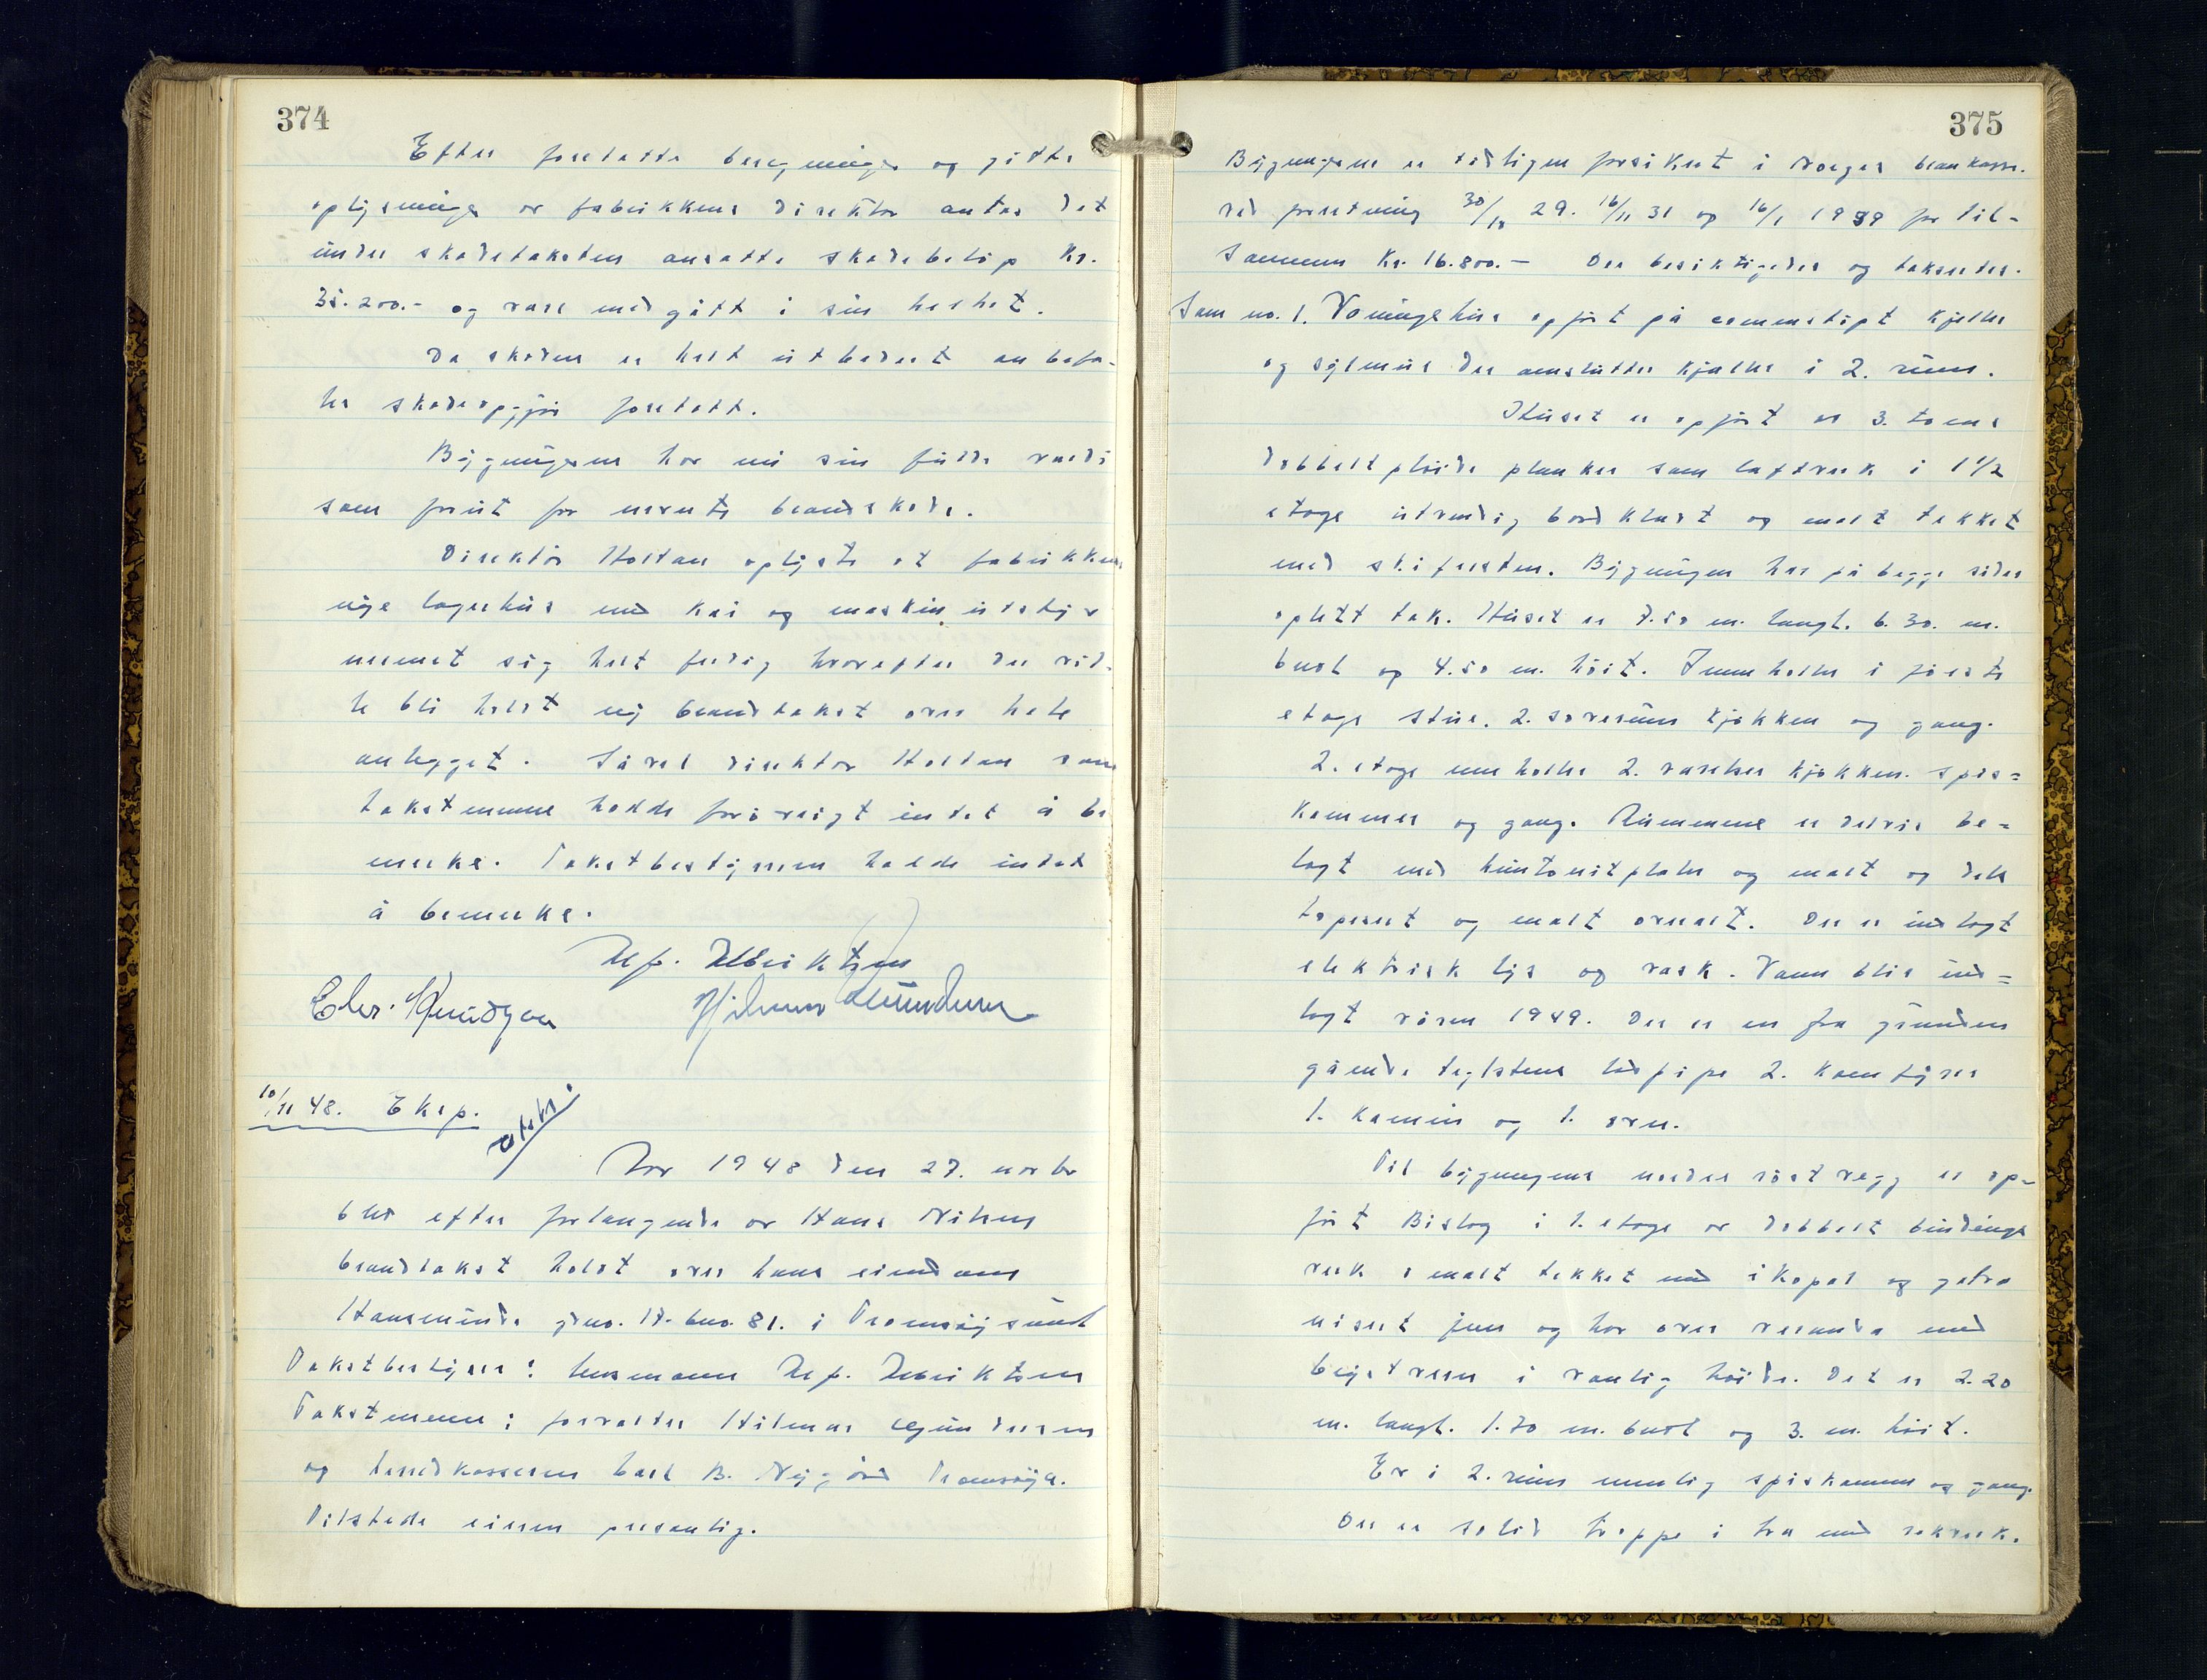 374
Efter foretatte beregninger og gitte
oplysninger av fabrikkens direktør antas det
under skadetaksten ansatte skadebeløp kr.
35.200.- og vare medgått i sin helhet.
Da skaden er helt utbedret anbefa-
les skadeopgjør foretatt.
Bygningene har nu sin fulde verdi
som forut for nevnte brandskade.
Direktør Holtan oplyste at fabrikkens
nye lagerhus med kai og maskinutstyr
nermet sig helt ferdig hvorefter der vil-
le bli holdt ny brandtakst over hele
anlegget. Såvel direktør Holtan som
takstmenne hadde forøvrigt intet å be
merke. Takstbestyreren hadde intet
å bemerke.
Alf. Albriktsen
Chr. Knudsen Hjilmar Gundersen
10/11 48. Eksp.
Aar 1948 den 27. novbr
blev efter forlangende av Hans Nilsen
brandtakst holdt over hans eiendom
Hansminde gno. 17. bno. 81. i Tromsøysund
Takstbestyrer: lensmann Alf. Albriktsen
Takstmenn: forvalter Hilmar Gundersen
og herredkasserer Carl B. Nygård Tromsøya.
Tilstede eieren personlig.
375
Bygningene er tidligere forsikret i Norges brankasse.
ved forretning 30/10 29. 16/11 31 og 16/1 1939 for til-
sammen kr. 16.800.- Der besiktigedes og taksertes.
Som no. 1. Våningshus opført på cementstøpt kjeller
og sylmur der omslutter kjeller i 2. rum.
Huset er opført av 3. toms
dobbeltpløide planker som laftverk i 1 1/2
etage utvendig bordkledt og malt tekket
med skifersten. Bygningen har på begge sider
opløtt tak. Huset er 7.50 m. langt. 6.30. m.
bredt og 4.50 m. høit. Inneholder i første
etage stue. 2. soverum kjøkken og gang.
2. etage inneholder 2. værelser kjøkken. spis=
kammer og gang. Rummene er delvis be=
lagt med huntonitplater og malt og dels
tapesert og malt overalt. Der er indlagt
elektrisk lys og vask. Vann blir ind=
lagt våren 1949. Der er en fra grunden
gående teglstens luspipe 2. komfyrer
1. kamin og 1. ovn.
Til bygningens nordre røstvegg er op-
ført Bislag i 1. etage av dobbelt bindings
verk omalt tekket med ikopal og galva
nisert jern og har over veranda med
brystvern i vanlig høide. Det er 2.20
m. langt. 1.70 m. bredt og 3. m. høit.
Er i 2. rum nemlig spiskammer og gang.
Der er solid trappe i tre med rekverk.